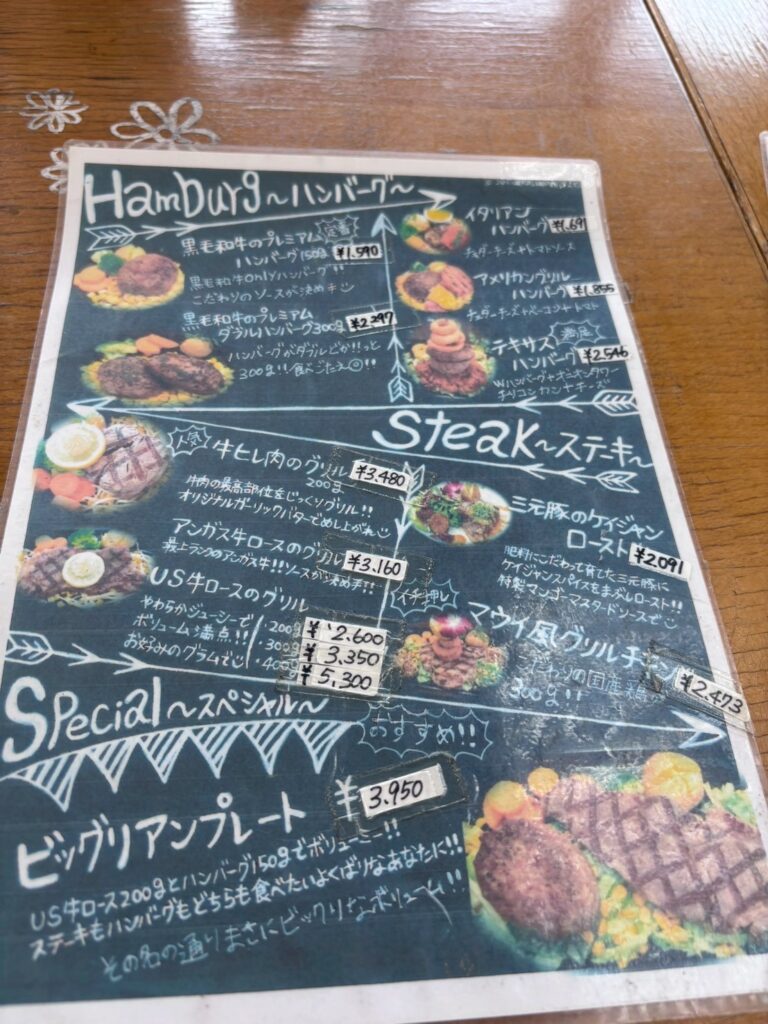 Hamburg～ハンバーグ～
黒毛和牛のプレミアム 定番
ハンバーグ150g ¥1.590
黒毛和牛Onlyハンバーグ!!
こだわりのソースが決め手
黒毛和牛のプレミアム
ダブルハンバーグ300g ¥2.297
ハンバーグがダブルでどか!!っと
300g!!食べごたえ◎!!
イタリアン
ハンバーグ ¥1.691
チェダーチーズ+トマトソース
アメリカングリル
ハンバーグ ¥1.855
チェダーチーズ+ベーコン+トマト
テキサス 満足
ハンバーグ ¥2.546
Wハンバーグ+オニオンタワー
チリコンカン+チーズ
Steak～ステーキ～
人気 牛ヒレ肉のグリル
200g ¥3.480
牛肉の最高部位をじっくりグリル!!
オリジナルガーリックバターでめし上がれ
アンガス牛ロースのグリル
¥3.160
最上ランクのアンガス牛!!ソースが決め手!!
US牛ロースのグリル
やわらかジューシーで
ボリューム満点!!
お好みのグラムで
200g ¥2.600
300g ¥3.350
400g ¥5,300
三元豚のケイジャン
ロースト ¥2.091
肥料にこだわって育てた三元豚に
ケイジャンスパイスをまぶしロースト!!
特製マンゴーマスタードソースで
イチ押し
マウイ風グリルチキン
¥2.473
こだわりの国産鶏
300g!!
Special～スペシャル～
おすすめ!!
ビッグリアンプレート ¥3.950
US牛ロース200gとハンバーグ150gでボリューミー!!
ステーキもハンバーグもどちらも食べたいよくばりなあなたに!!
その名の通りまさにビックリなボリューム!!